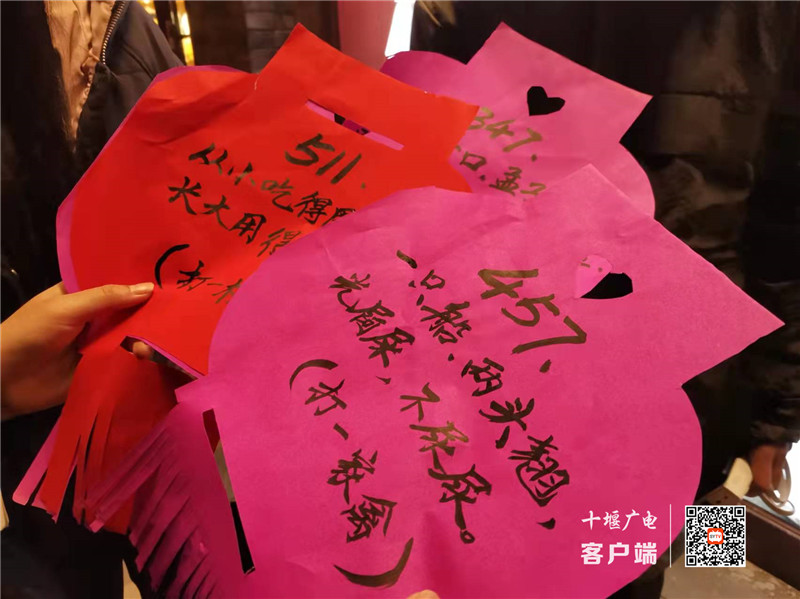 511、
从小吃得
长大用得
(打一
347、
457、
一只船、两头翘,
光屙屎,不屙尿。
(打一家禽)
十堰广电
客户端